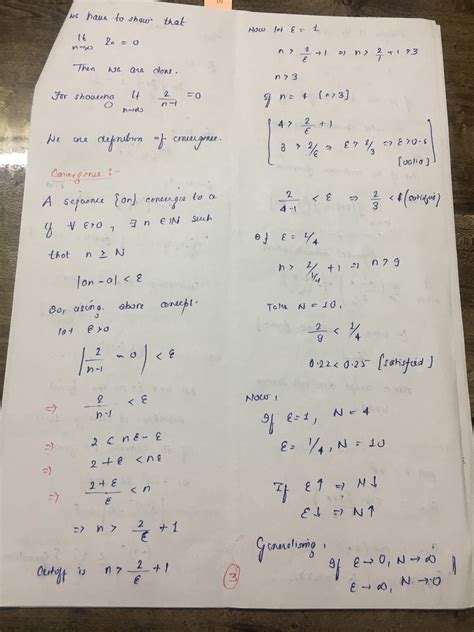 We have to show that
lt n→∞ 2n = 0
Then we are done.
For showing lt n→∞ 2/(n-1) = 0
We use definition of convergence.
Convergence :-
A sequence {an} converges to a
if ∀ ε>0, ∃ n ∈ IN such
that n ≥ N
|an - 0| < ε
Our using above concept.
let ε>0
|2/(n-1) - 0| < ε
⇒ 2/(n-1) < ε
⇒ 2 < nε - ε
⇒ 2 + ε < nε
⇒ (2+ε)/ε < n
⇒ n > 2/ε + 1
Cutoff is n > 2/ε + 1
3
Now let ε = 1
n > 2/ε + 1 ⇒ n > 2/1 + 1 > 3
n > 3
If n = 4 [n > 3]
4 > 2/ε + 1
3 > 2/ε ⇒ ε > 2/3 ⇒ ε > 0.6
[valid]
2/(4-1) < ε ⇒ 2/3 < 1 (satisfied)
If ε = 1/4
n > 2/(1/4) + 1 ⇒ n > 9
Take N = 10,
2/9 < 1/4
0.22 < 0.25 [satisfied]
Now,
If ε = 1, N = 4
ε = 1/4, N = 10
If ε↑ ⇒ N↓
ε↓ ⇒ N↑
Generalising,
If ε → 0, N → ∞
ε → ∞, N → 0